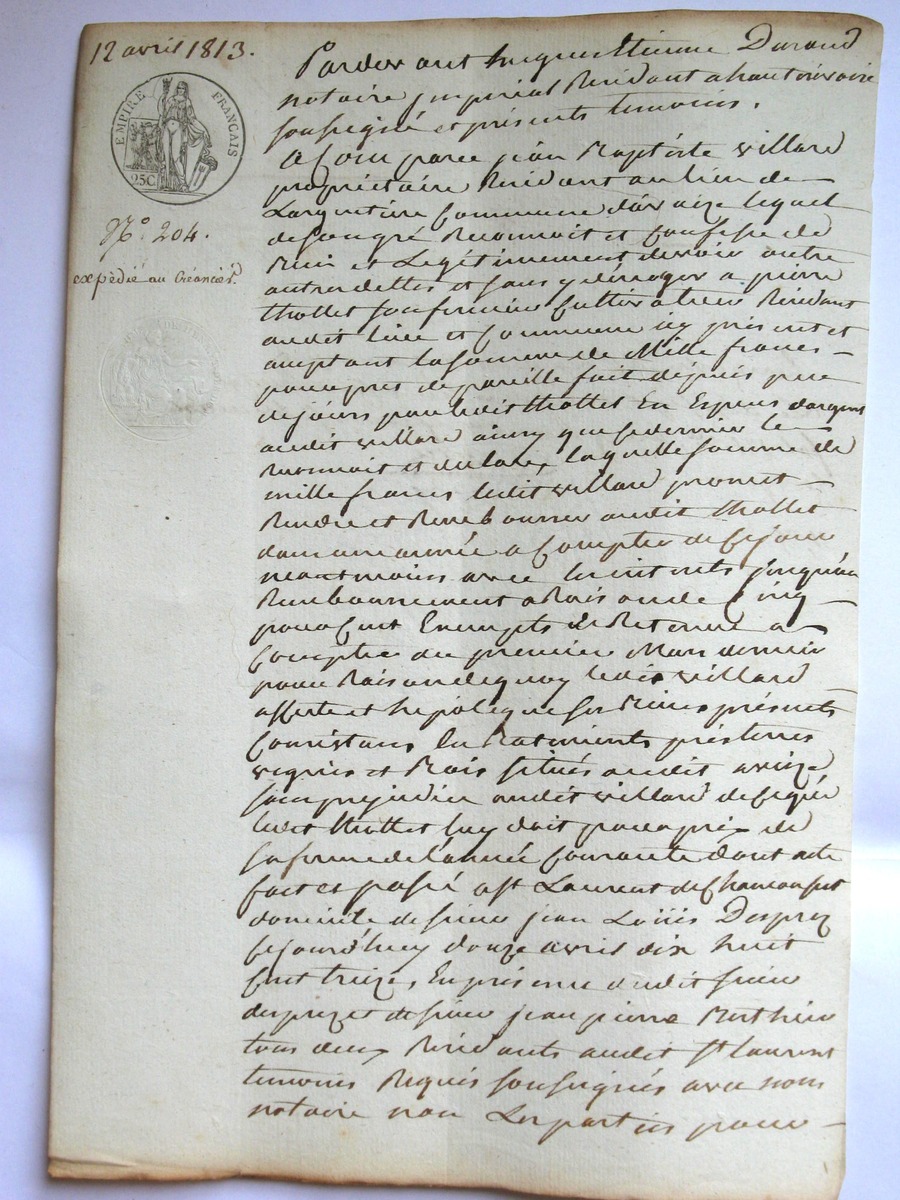 12 avril 1813.
EMPIRE FRANÇAIS
25C
N.º 204.
expédié au Créancier
Pardevant hugues Etienne Durand
notaire imperial Residant a hauterivoire
soussigné et présents temoins.
A Comparu jean Baptiste villard
propriétaire Residant au lieu de
Largentiere Commune d'avaize lequel
de son gré Reconnoit et Confesse de
Bien et Legitimement devoir outre
autres dettes et sans y déroger a pierre
thollet son fermier Cultivateur Residant
audit lieu et Commune icy présent et
aceptant la somme de Mille francs
pour pres de pareille fait depuis peu
de jours par ledit thollet En Especes d'argent
audit villard ainsy que ce dernier le
Reconnoit et declare, laquelle somme de
mille francs ledit villard promet
Rendre et Rembourser audit thollet
dans une année a Compter de Ce jour
neantmoins avec les interets jusqu'au
Remboursement a Raison de Cinq
pour Cent Exempts de Retenue a
Compter du premier Mars dernier
pour Raison de quoy ledit villard
affecte et hipoteque ses Biens présents
Consistans En Batiments prés terres
vignes et Bois situés audit avaize
sans prejudice audit villard de Ce que
ledit thollet luy doit pour prix de
sa ferme de l'année Courante dont acte
fait et passé a St Laurent de Chamousset
domicile de sieur jean Loüis Desprez
Cejourd'huy douze avril dix huit
Cent treize, En présence dudit sieur
desprez et de sieur jean pierre Berthier
tous deux Residants audit St Laurent
temoins Requis soussignés avec nous
notaire non Les parties pour